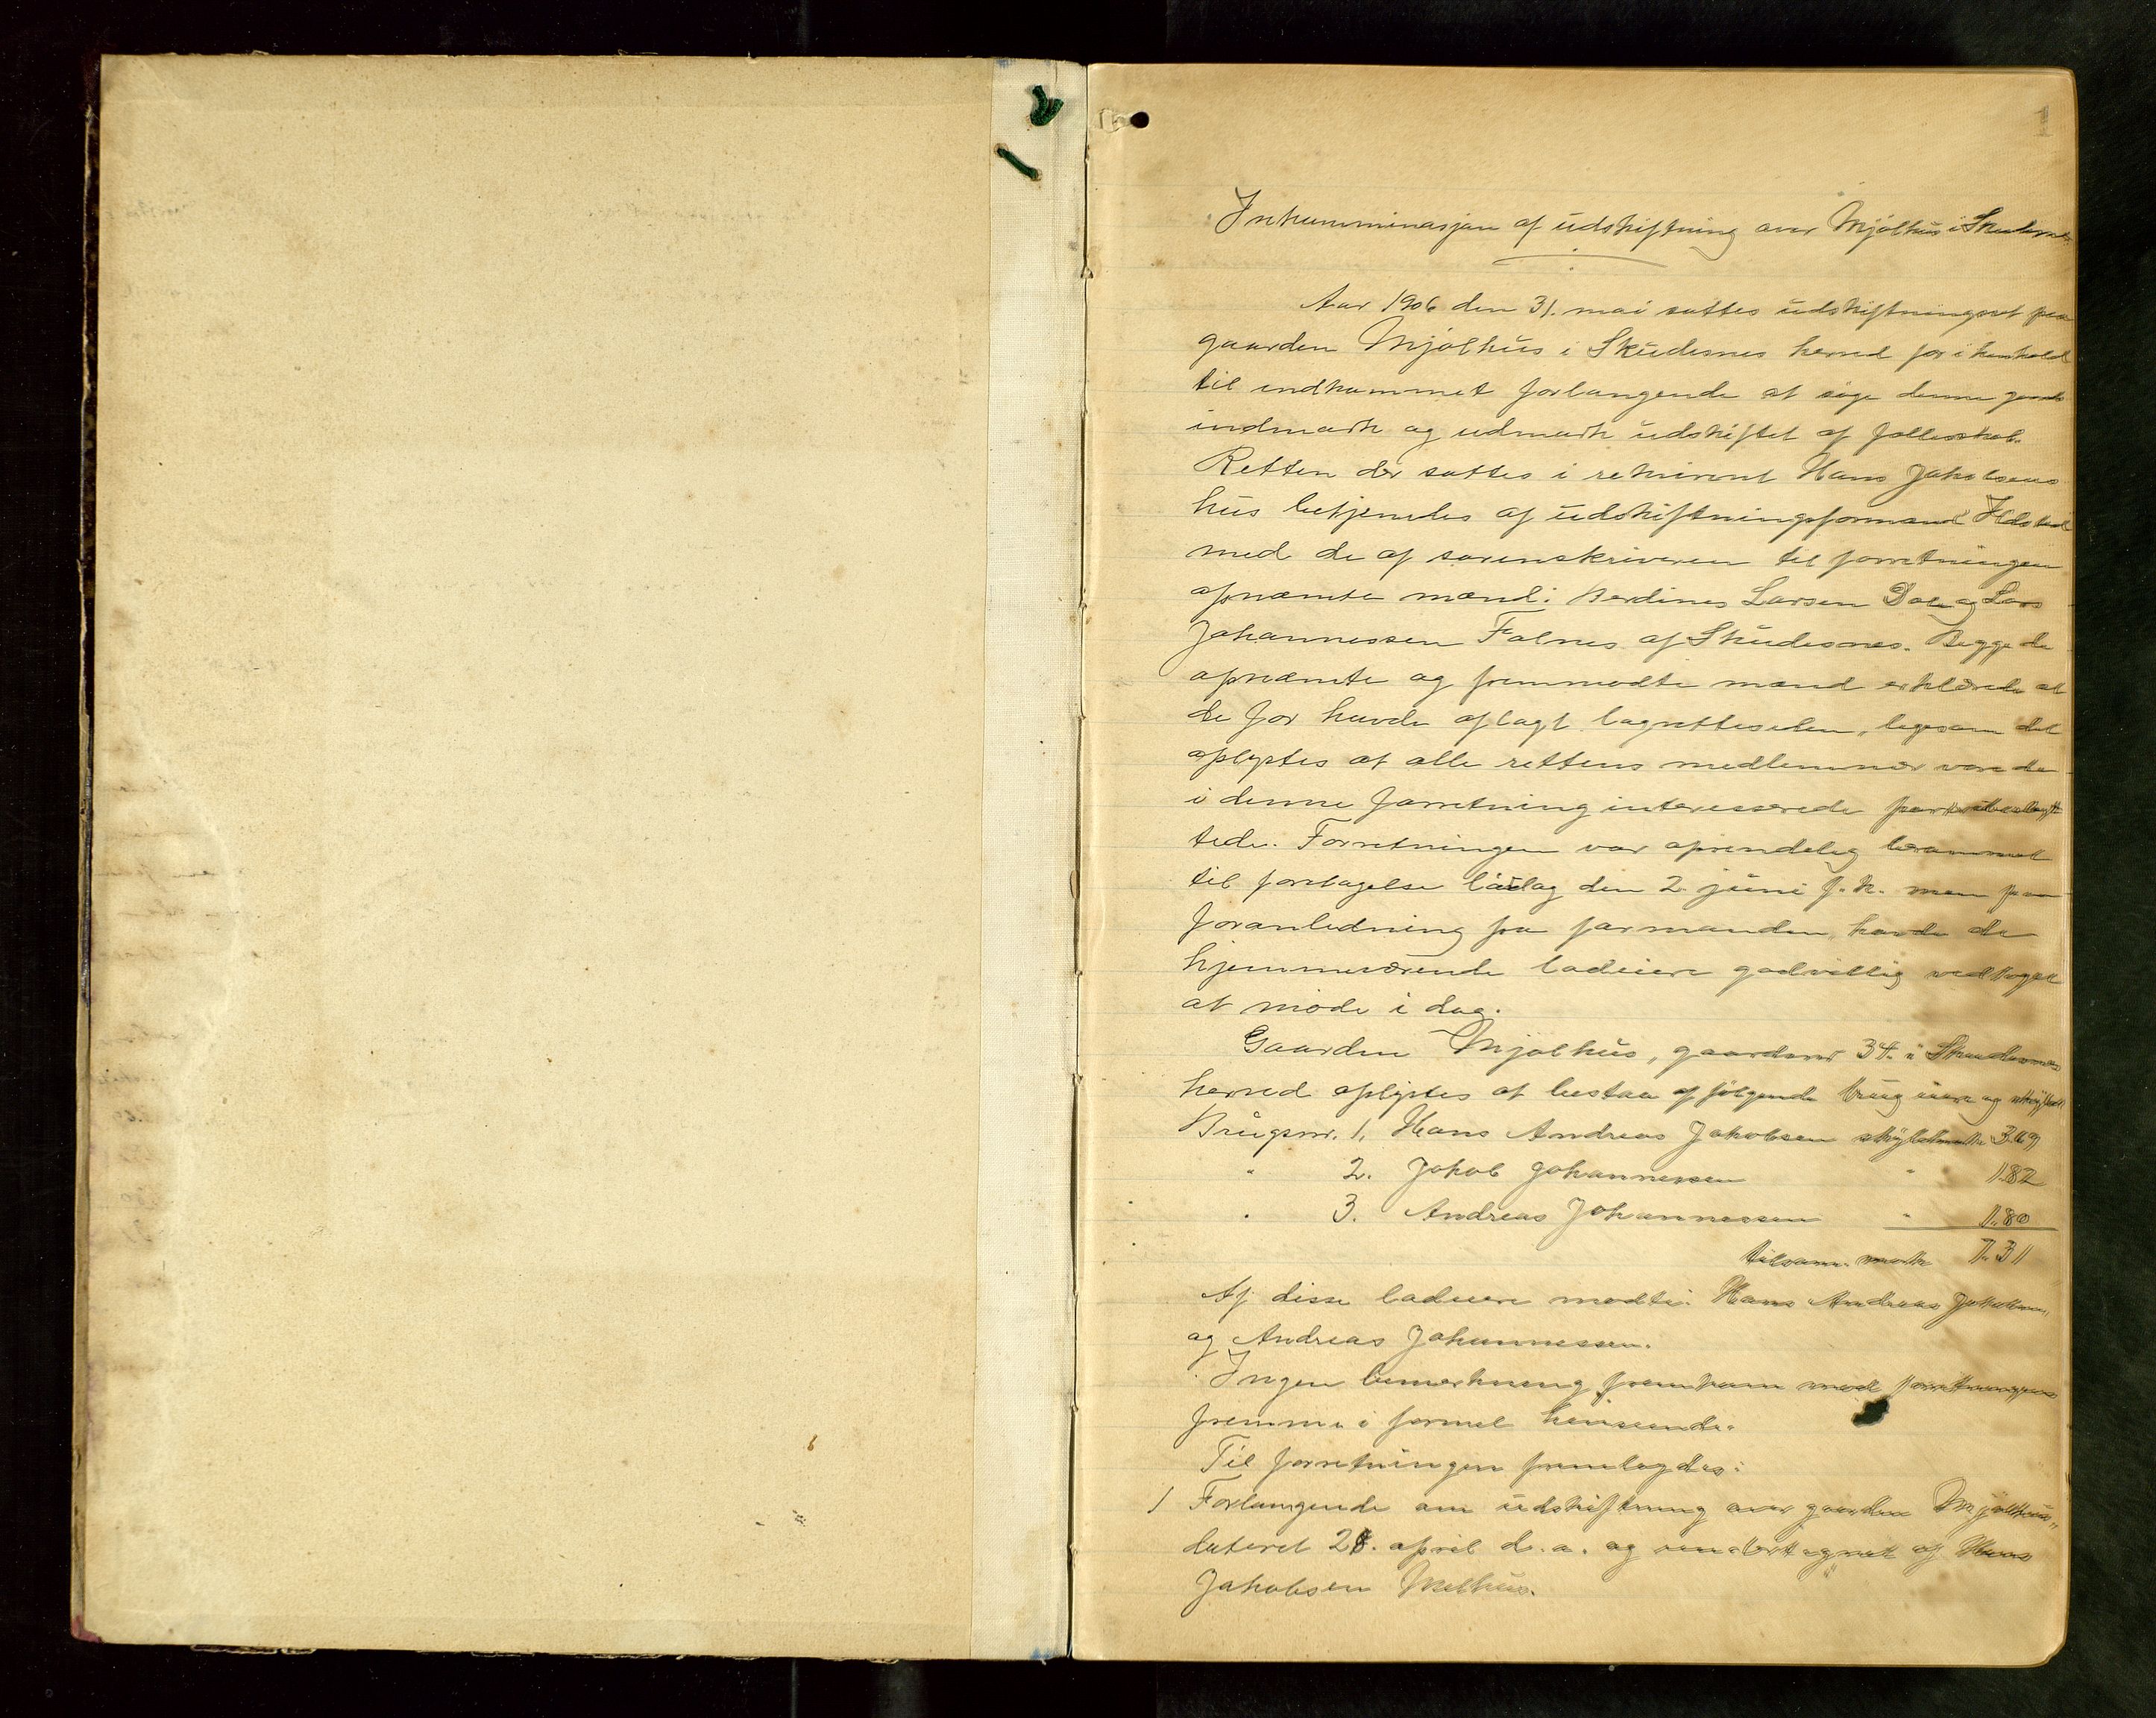 1
Inkamminasjon af udskiftning over Mjølhus i Skudesnes.
Aar 1906 den 31. mai sattes udskiftningsret paa
gaarden Mjølhus i Skudesnes herred for i henhold
til indkommet forlangende at søge denne gaards
indmark og udmark udskiftet af fællesskab.
Retten der sattes i rekvirent Hans Jakobsens
hus betjentes af udskiftningsformand
med de af sorenskriveren til forretningen
opnævnte mænd: Berdines Larsen Dale og Lars
Johannessen Falnes af Skudesnes. Begge de
opnævnte og fremmødte mænd erklærede at
de før havde aflagt lagretteseden, ligesom det
oplystes at alle rettens medlemmer vare de
i denne forretning interesserede parter ubeslægt
tede. Forretningen var oprindelig berammet
til foretagelse lørdag den 2. juni f. k. men paa
foranledning fra formanden, havde de
hjemmeværende lodeiere godvillig vedtaget
at møde i dag.
Gaarden Mjølhus, gaardsnr 34 i Skudesnes
herred oplystes at bestaa af følgende brug eiere og skyld:
Brugsnr. 1, Hans Andreas Jakobsen skyldmark 3.69
" 2. Jakob Johannessen " 1.82
" 3. Andreas Johannessen " 1.80
tilsam. mark 7.31
Af disse lodeiere mødte: Hans Andreas Jakobsen
og Andreas Johannessen.
Ingen bemerkning fremkom mod forretningens
fremme i formel henseende.
Til forretningen fremlagdes:
1 Forlangende om udskiftning over gaarden Mjølhus,
dateret 28. april d. a. og undertegnet af Hans
Jakobsen Mælhus.